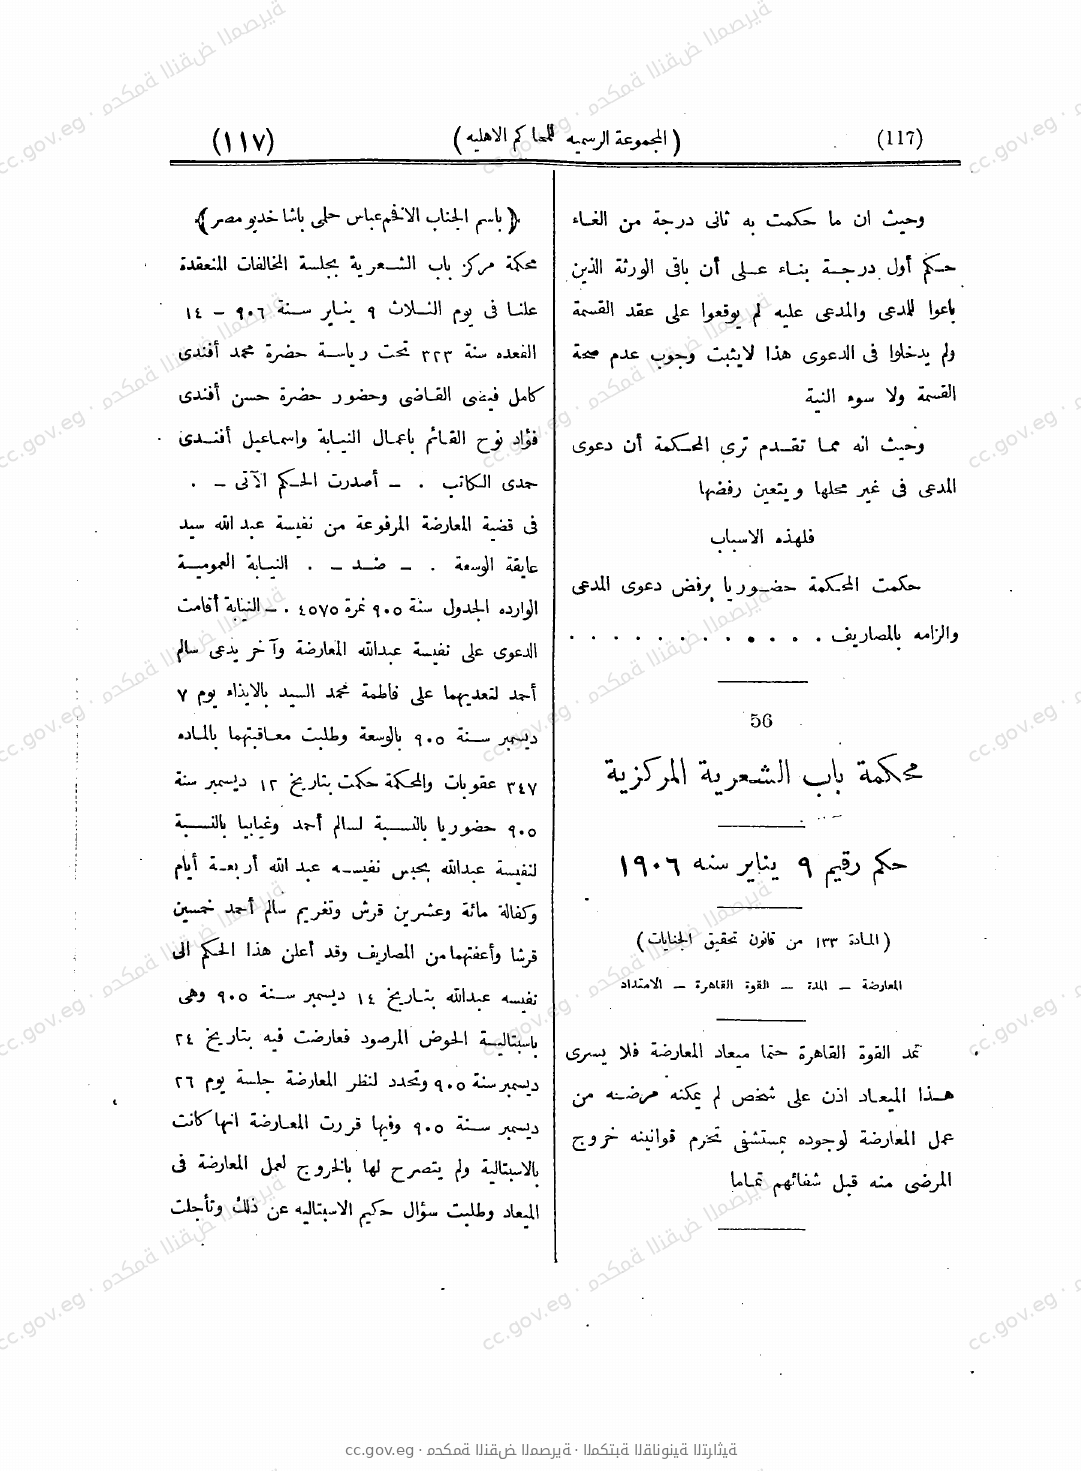 (117)
(المجموعة الرسميه للمحاكم الاهليه)
(١١٧)
وحيث ان ما حكمت به ثانى درجة من الغاء
حكم أول درجة بناء على أن باقى الورثة الذين
باعوا للمدعى والمدعى عليه لم يوقعوا على عقد القسمة
ولم يدخلوا فى الدعوى هذا لايثبت وجوب عدم صحة
القسمة ولا سوء النية
وحيث انه مما تقدم ترى المحكمة أن دعوى
المدعى فى غير محلها ويتعين رفضها
فلهذه الاسباب
حكمت المحكمة حضوريا برفض دعوى المدعى
والزامه بالمصاريف . . . . . . . . . .
56
محكمة باب الشعرية المركزية
حكم رقيم ٩ يناير سنه ١٩٠٦
(المادة ١٣٣ من قانون تحقيق الجنايات)
المعارضة – المدة – القوة القاهرة – الامتداد
تمد القوة القاهرة حتما ميعاد المعارضة فلا يسرى
هذا الميعاد اذن على شخص لم يمكنه مرضه من
عمل المعارضة لوجوده بمستشفى تحرم قوانينه خروج
المرضى منه قبل شفائهم تماما
﴿باسم الجناب الافخم عباس حلمى باشا خديو مصر﴾
محكمة مركز باب الشعرية بجلسة المخالفات المنعقدة
علنا فى يوم الثلاث ٩ يناير سنة ٩٠٦ – ١٤
القعده سنة ٣٢٣ تحت رياسة حضرة محمد أفندى
كامل فيضى القاضى وحضور حضرة حسن أفندى
فؤاد نوح القائم باعمال النيابة واسماعيل أفندى
حمدى الكاتب . – أصدرت الحكم الآتى – .
فى قضية المعارضة المرفوعة من نفيسة عبد الله سيد
عايقة الوسعة . – ضد – . النيابة العمومية
الوارده الجدول سنة ٩٠٥ نمرة ٤٥٧٥ . – النيابة أقامت
الدعوى على نفيسة عبدالله المعارضة وآخر يدعى سالم
أحمد لتعديهما على فاطمة محمد السيد بالايذاء يوم ٧
ديسمبر سنة ٩٠٥ بالوسعة وطلبت معاقبتهما بالماده
٣٤٧ عقوبات والمحكمة حكمت بتاريخ ١٢ ديسمبر سنة
٩٠٥ حضوريا بالنسبة لسالم أحمد وغيابيا بالنسبة
لنفيسة عبدالله بحبس نفيسه عبد الله أربعة أيام
وكفالة مائة وعشرين قرش وتغريم سالم أحمد خمسين
قرشا وأعفتهما من المصاريف وقد أعلن هذا الحكم الى
نفيسه عبدالله بتاريخ ١٤ ديسمبر سنة ٩٠٥ وهى
باسبتالية الحوض المرصود فعارضت فيه بتاريخ ٢٤
ديسمبر سنة ٩٠٥ وتحدد لنظر المعارضة جلسة يوم ٢٦
ديسمبر سنة ٩٠٥ وفيها قررت المعارضة انها كانت
بالاسبتالية ولم يتصرح لها بالخروج لعمل المعارضة فى
الميعاد وطلبت سؤال حكيم الاسبتاليه عن ذلك وتأجلت
cc.gov.eg · محكمة النقض المصرية · المكتبة القانونية التراثية